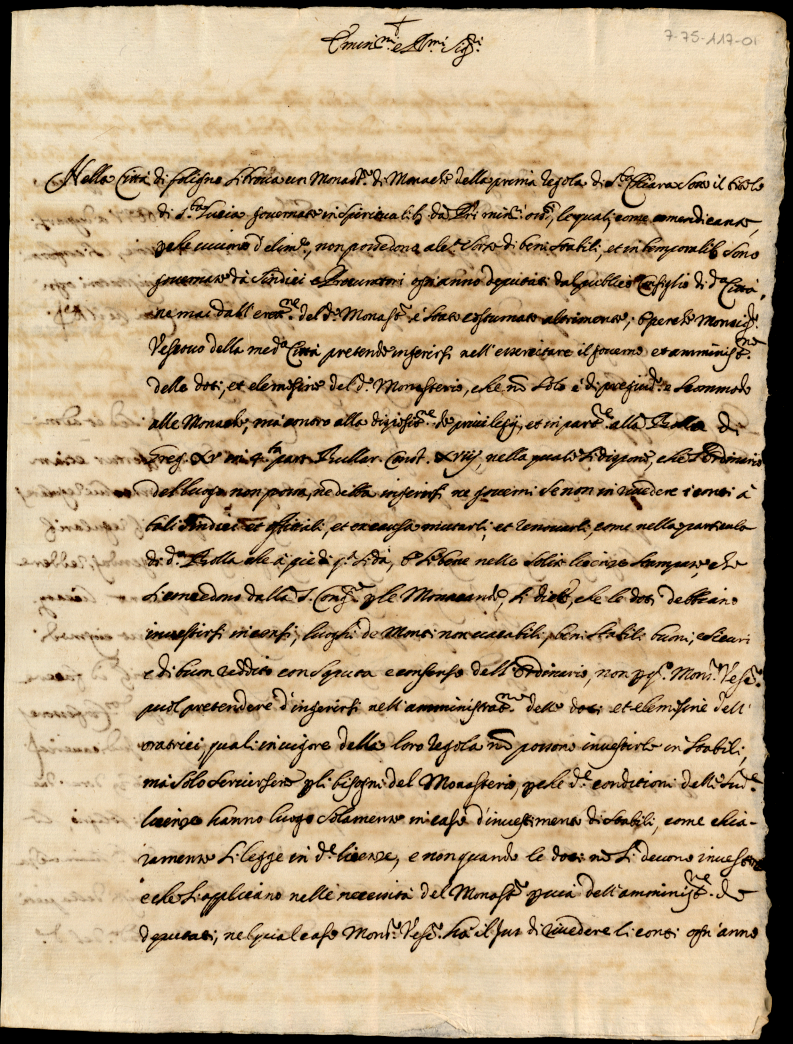 7-75-117-01
Emin.mi e R.mi Sig.ri
Nella Città di Foligno si trova un Monast.ro di Monache della prima regola di S.ta Chiara sotto il titolo
di S.ta Lucia governate in spirituali dà PP. min. oss., le quali come mendicante,
 non possedono alc.a sorte di beni stabili, et in temporalib. sono
governate dà Sindici e Procuratori ogn'anno deputati dal publico Consiglio di d.a Città,
ne mai dall'erett.ne del d.o Monast.ro è stato costumato altrimente; Però Monsig.r
Vescovo della med.a Città pretende ingerirsi nell'essercitare il governo, et amminist.ne
delle doti, et elemosine del d.o Monasterio, che nõ solo è di pregiud.o e scommodo
alle Monache, mà contro alla disposit.ne de privilegij, et in part.re alla Bolla di
Greg. XV in 4.ta part. Bullar. Const. XVIIJ, nella quale si dispone, che l'Ordinario
del luogo non possa, ne debba ingerirsi ne governi se non in rivedere i conti à
tali Sindici et officiali, et ex causa mutarli, et rimoverli, come nella particola
di d.a Bolla che à piedi q.a si dà, E se bene nelle solite licenze stampate, che
si concedono dalla S. Cong.ne p le Monacande, si dich.a, che le doti debbiano
investirsi in censi, luoghi de Monti non vacabili, beni stabili buoni, e sicuri
e di buon reddito con saputa e consenso dell'Ordinario, non p q.o Mons.r Vesc.o
puol pretendere d'ingerirsi nell'amministrat.ne delle doti et elemosine dell'
oratrici, quali in vigore della loro regola nõ possono investirle in stabili,
mà solo servirsene p li bisogni del Monasterio, p che le d.e conditioni delle sud.e
licenze hanno luogo solamente in caso d'investimento di stabili, come chia-
ramente si legge in d.e licenze, e non quando le doti nõ si devono investire
e che si applicano nelle necessità del Monast.ro p via dell'amminist.ne de
deputati, nel qual caso Mons.r Vesc.o hà il jus di rivedere li conti ogn'anno